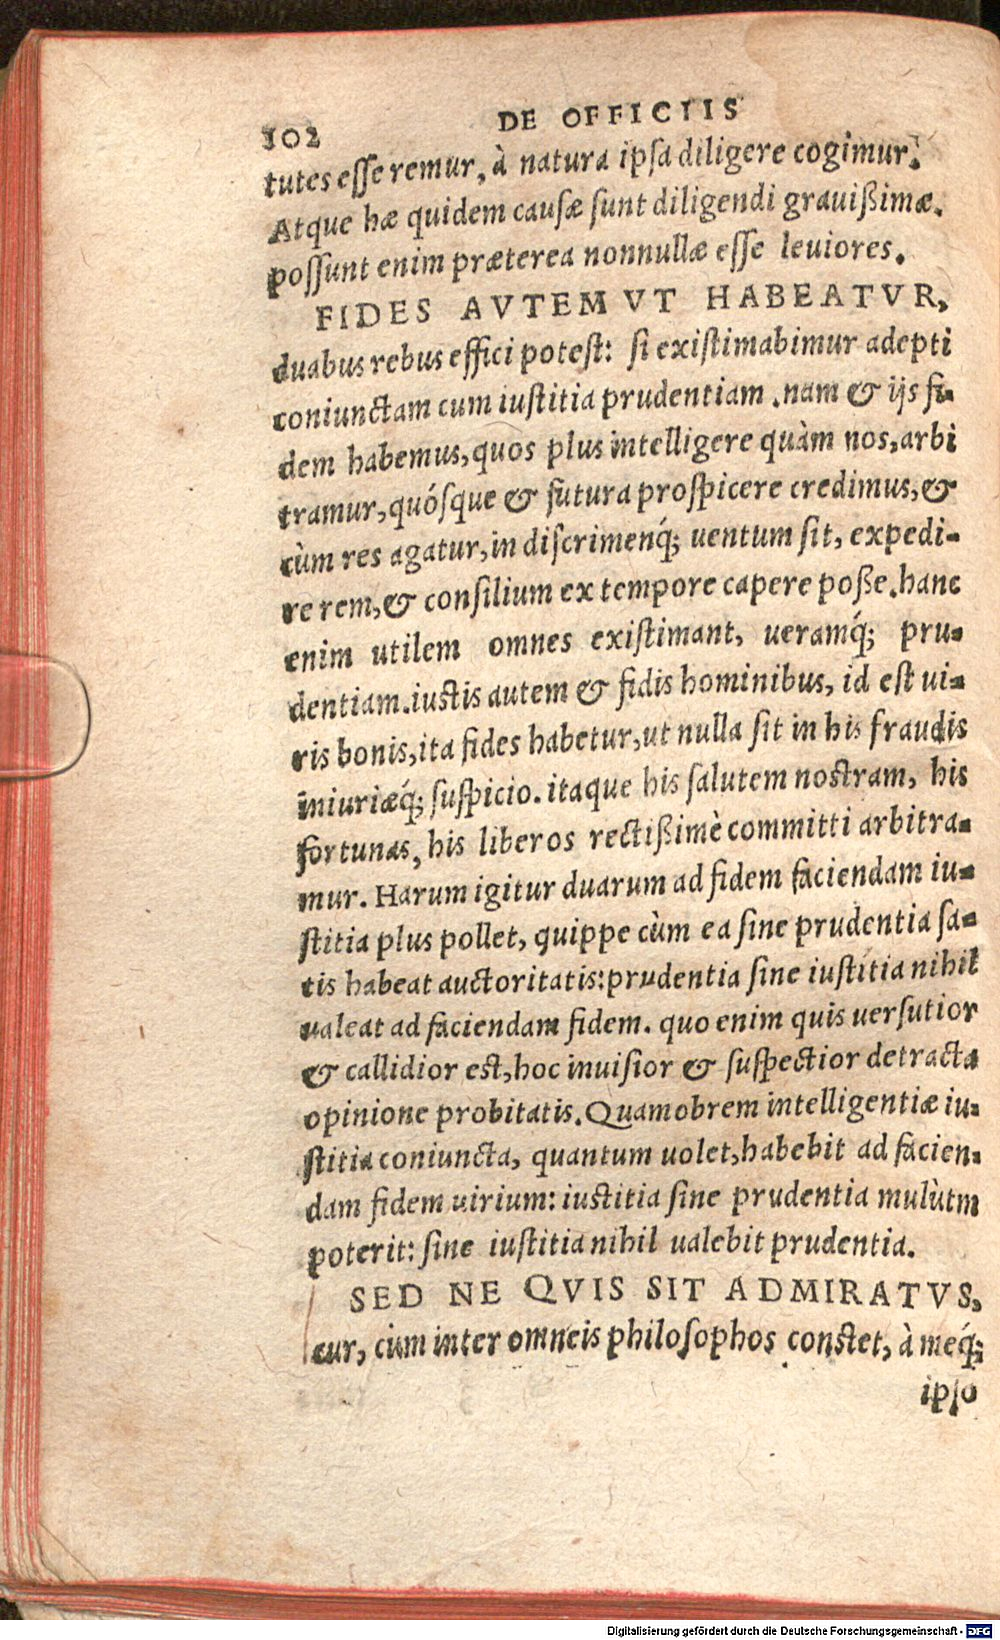 102 DE OFFICIIS
tutes esse remur, à natura ipsa diligere cogimur.
Atque hæ quidem causæ sunt diligendi grauißimæ.
possunt enim præterea nonnullæ esse leuiores.
FIDES AVTEM VT HABEATVR,
duabus rebus effici potest: si existimabimur adepti
coniunctam cum iustitia prudentiam .nam & ijs fi-
dem habemus, quos plus intelligere quàm nos, arbi
tramur, quósque & futura prospicere credimus, &
cùm res agatur, in discrimenq́; uentum sit, expedi-
re rem, & consilium ex tempore capere poße. hanc
enim utilem omnes existimant, ueramq́; pru-
dentiam. iustis autem & fidis hominibus, id est ui-
ris bonis, ita fides habetur, ut nulla sit in his fraudis
iniuriæq́; suspicio. itaque his salutem nostram, his
fortunas, his liberos rectißimè committi arbitra-
mur. Harum igitur duarum ad fidem faciendam iu-
stitia plus pollet, quippe cùm ea sine prudentia sa-
tis habeat auctoritatis: prudentia sine iustitia nihil
ualeat ad faciendam fidem. quo enim quis uersutior
& callidior est, hoc inuisior & suspectior detracta
opinione probitatis. Quamobrem intelligentiæ iu-
stitia coniuncta, quantum uolet, habebit ad facien-
dam fidem uirium: iustitia sine prudentia mulùtm
poterit: sine iustitia nihil ualebit prudentia.
SED NE QVIS SIT ADMIRATVS,
cur, cùm inter omneis philosophos constet, à meq́;
ipso
Digitalisierung gefördert durch die Deutsche Forschungsgemeinschaft - DFG